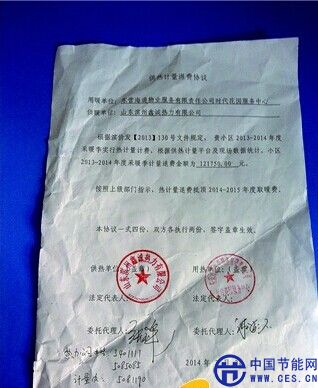 供热计量退费协议
用暖单位：东营海通物业服务有限责任公司时代花园服务中心
供暖单位：山东滨州鑫诚热力有限公司
根据滨价发【2013】130号文件规定，贵小区2013-2014年度
采暖季实行热计量计费，根据供热计量平台及现场数据统计，小区
2013-2014年度采暖季计量退费金额为 121750.00 元。
按照上级部门指示，热计量退费抵顶2014-2015年度取暖费。
本协议一式四份，双方各执行两份，签字盖章生效。
供热单位：（盖章） 用热单位：（盖章）
法定代表人： 法定代表人：
委托代理人： 委托代理人：
3401117
5085085
计量 5081190
2014
中国节能网